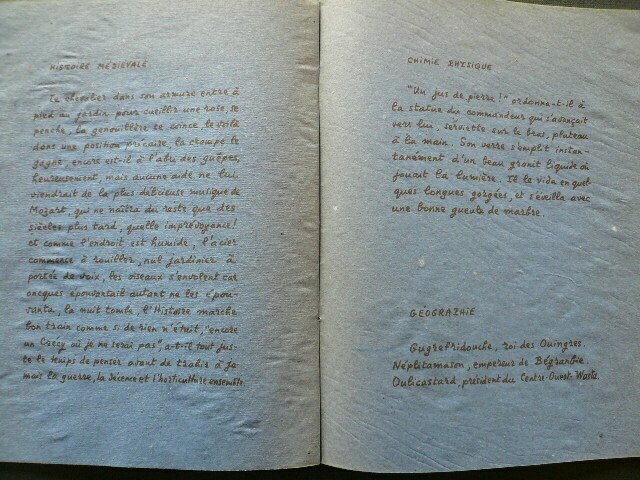 HISTOIRE MÉDIÉVALE
Le chevalier dans son armure entre à
pied au jardin pour cueillir une rose, se
penche, la genouillère se coince, le voilà
dans une position précaire, la crampe le
gagne, encore est-il à l'abri des guêpes,
heureusement, mais aucune aide ne lui
viendrait de la plus délicieuse musique de
Mozart, qui ne naîtra du reste que des
siècles plus tard, quelle imprévoyance!
et comme l'endroit est humide, l'acier
commence à rouiller, nul jardinier à
portée de voix, les oiseaux s'envolent car
oncques épouvantail autant ne les épou-
vanta, la nuit tombe, l'Histoire marche
bon train comme si de rien n'était, "encore
un Crécy où je ne serai pas", a-t-il tout jus-
te le temps de penser avant de trahir à ja-
mais la guerre, la science et l'horticulture ensemble.
CHIMIE PHYSIQUE
"Un jus de pierre!" ordonne-t-il à
la statue du commandeur qui s'avançait
vers lui, serviette sur le bras, plateau
à la main. Son verre s'emplit instan-
tanément d'un beau granit liquide où
jouait la lumière. Il le vida en quel-
ques longues gorgées, et s'éveilla avec
une bonne gueule de marbre.
GÉOGRAPHIE
Gugrefridouche, roi des Ouingres.
Néplitamason, empereur de Bégranbie
Oulicastard, président du Centre-Ouest-Waste.